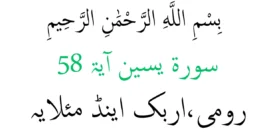 بِسْمِ اللَّهِ الرَّحْمَٰنِ الرَّحِيمِ
سورة یسین آیۃ 58
رومی،اربک اینڈ مئلایہ